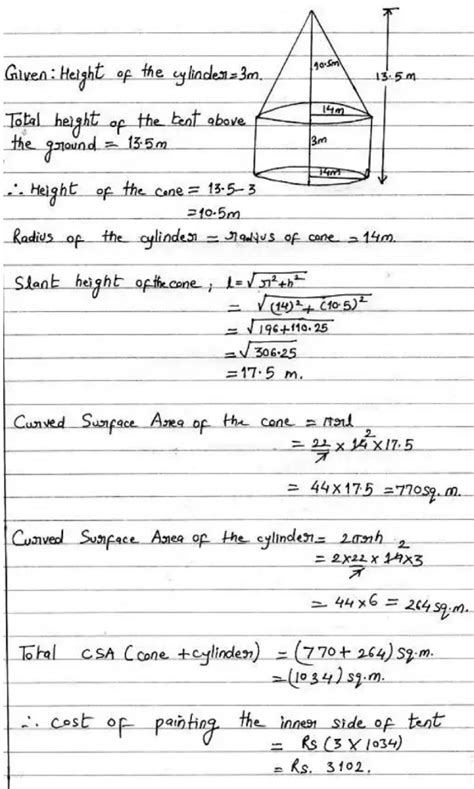 10.5m
13.5m
14m
3m
14m
Given: Height of the cylinder = 3m.
Total height of the tent above
the ground = 13.5m
∴ Height of the cone = 13.5-3
= 10.5m
Radius of the cylinder = radius of cone = 14m.
Slant height of the cone, l = √r²+h²
= √(14)² + (10.5)²
= √196+110.25
= √306.25
= 17.5 m.
Curved Surface Area of the cone = πrl
= 22/7 × 14 2 × 17.5
= 44×17.5 = 770 sq. m.
Curved Surface Area of the cylinder = 2πrh
= 2×22/7 × 14 2 ×3
= 44×6 = 264 sq. m.
Total CSA (cone + cylinder) = (770+ 264) sq. m.
= (1034) sq. m.
∴ cost of painting the inner side of tent
= Rs (3 × 1034)
= Rs. 3102.